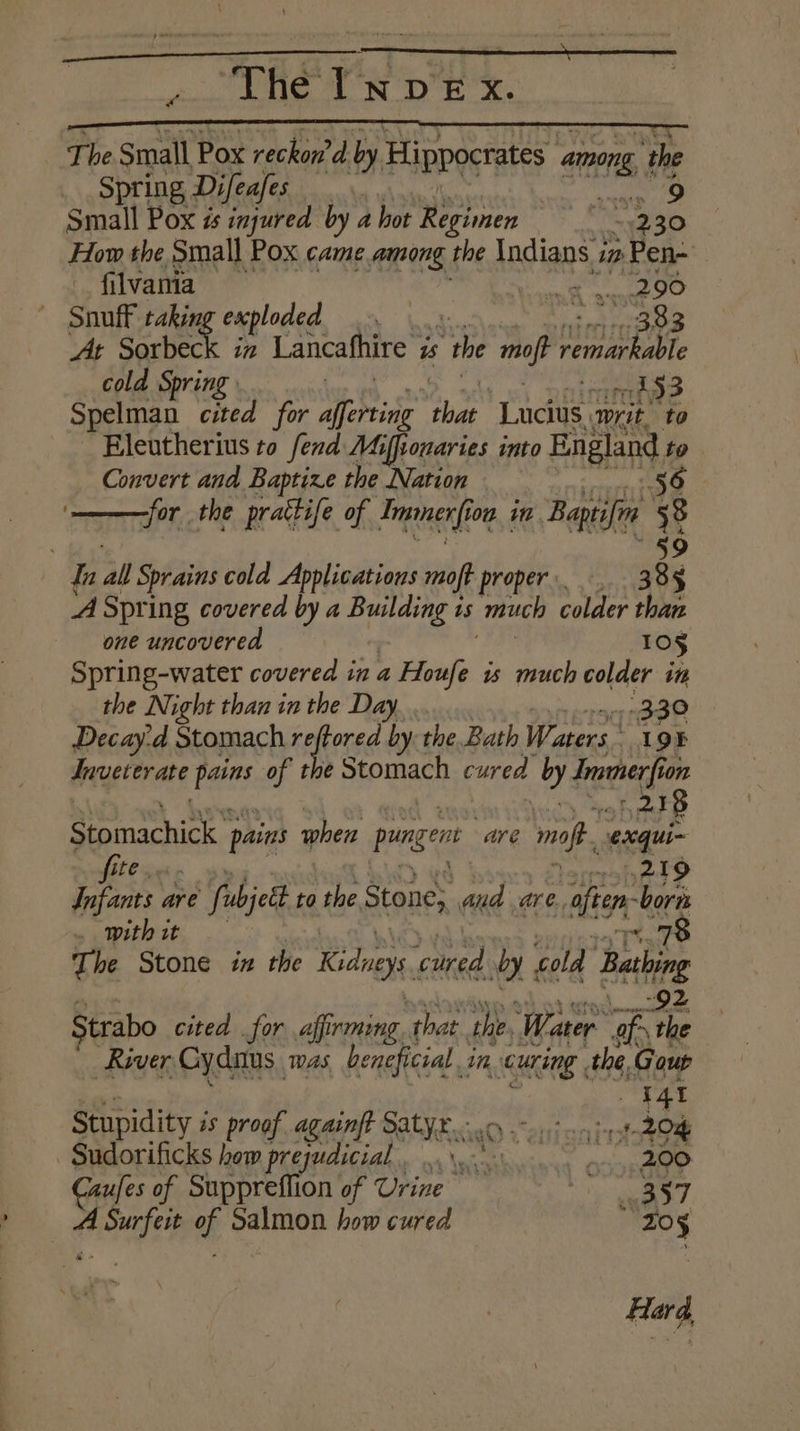 The INDEX.
The Small Pox reckon'd by Hippocrates among the
Spring Diſeaſes 9
Small Pox is injured by a hot Regimen 230
How the Small Pox came among the Indians in Pen-
ſilvania 290
Snuff taking exploded 383
At Sorbeck in Lancaſhire is the moſt remarkable
cold Spring 153
Spelman cited for aſſerting that Lucius writ to
Eleutherius to ſend Miſſionaries into England to
Convert and Baptize the Nation 56
———for the practiſe of Immerſion in Baptiſm 58
59
In all Sprains cold Applications moſt proper 385
A Spring covered by a Building is much colder than
one uncovered 105
Spring-water covered in a Houſe is much colder in
the Night than in the Day 330
Decay'd Stomach reſtored by the Bath Waters 191
Inveterate pains of the Stomach cured by Immerſion
218
Stomachick pains when pungent are moſt exqui-
ſite 219
Infants are ſubject to the Stone, and are often-born
with it 78
The Stone in the Kidneys cured by cold Bathing
92
Strabo cited for affirming that the Water of the
River Cydnus was beneficial in curing the Gout
141
Stupidity is proof againſt Satyr 204
Sudorificks how prejudicial 200
Cauſes of Suppreſſion of Urine 357
A Surfeit of Salmon how cured 205
Hard